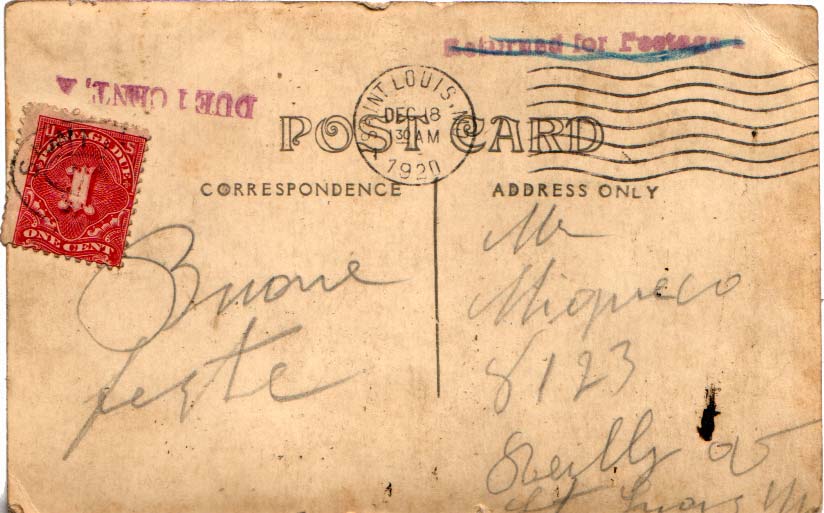 Returned for Postage
DUE 1 CENT,
SAINT LOUIS, M
DEC 18
30 AM
1920
POST CARD
CORRESPONDENCE
ADDRESS ONLY
POSTAGE DUE
1
ONE CENT
Buone
feste
Mr
8123
Reilly av
St Louis Mo